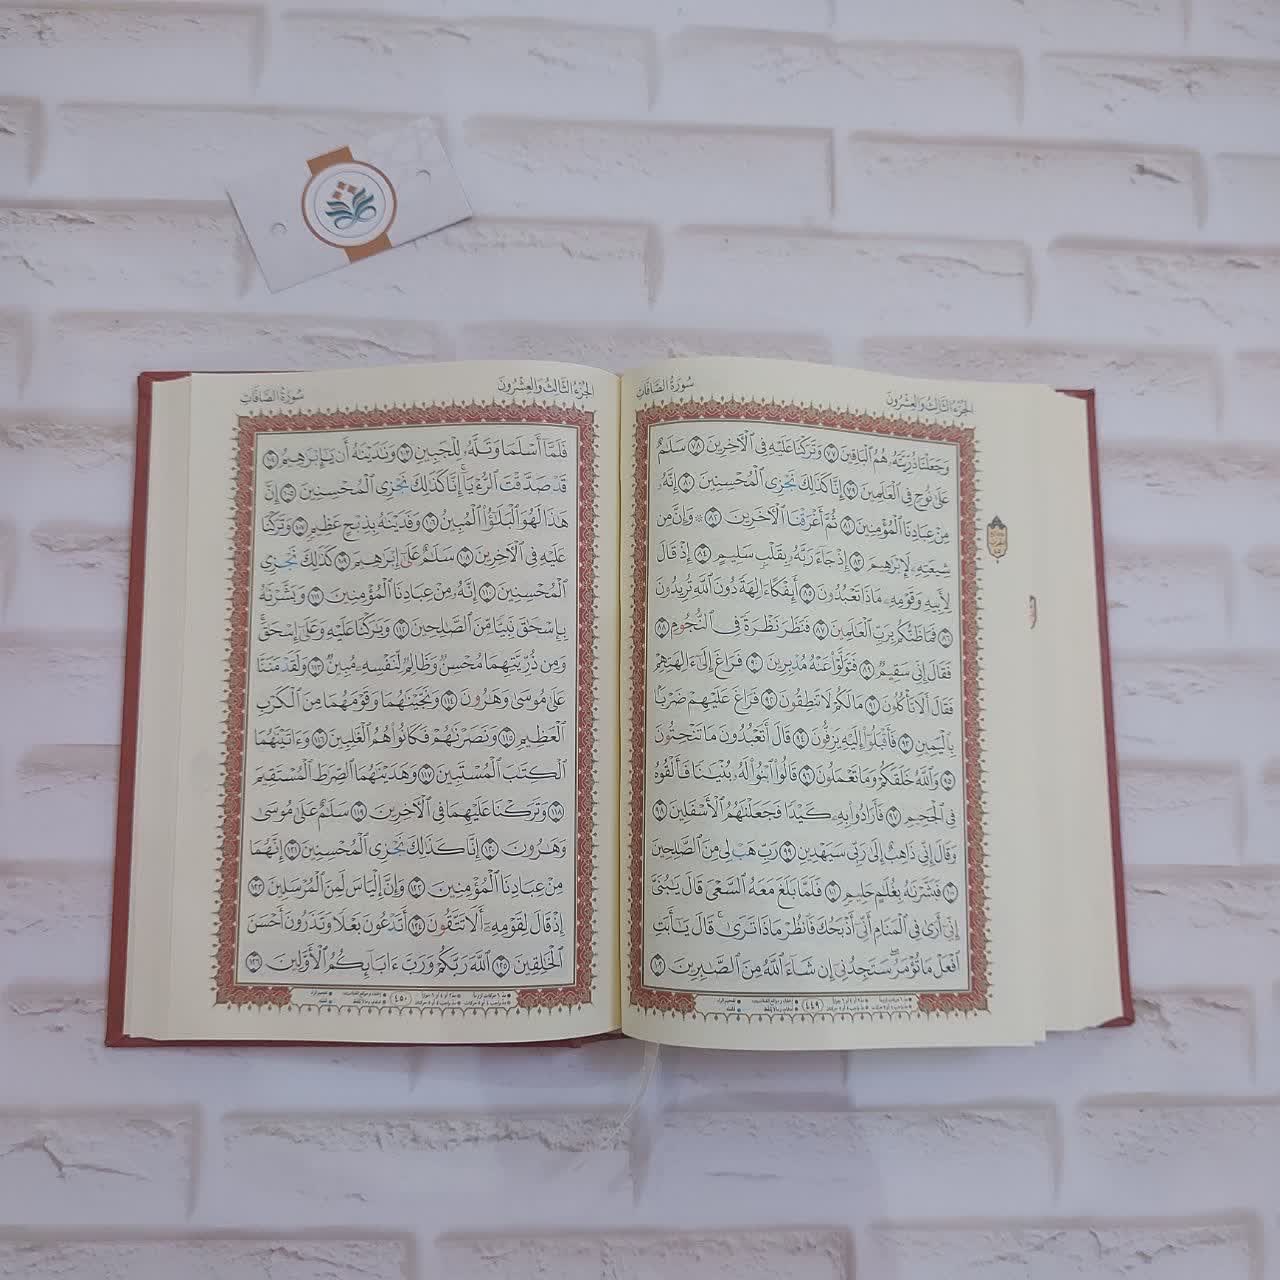 سُورَةُ الصَّافَّاتِ
الجُزْءُ الثَّالِثُ وَالعِشْرُونَ
وَجَعَلْنَا ذُرِّيَّتَهُۥ هُمُ ٱلْبَاقِينَ ٧٧ وَتَرَكْنَا عَلَيْهِ فِى ٱلْـَٔاخِرِينَ ٧٨ سَلَٰمٌ
عَلَىٰ نُوحٍ فِى ٱلْعَٰلَمِينَ ٧٩ إِنَّا كَذَٰلِكَ نَجْزِى ٱلْمُحْسِنِينَ ٨٠ إِنَّهُۥ
مِنْ عِبَادِنَا ٱلْمُؤْمِنِينَ ٨١ ثُمَّ أَغْرَقْنَا ٱلْـَٔاخَرِينَ ٨٢ ۞ وَإِنَّ مِن
شِيعَتِهِۦ لَإِبْرَٰهِيمَ ٨٣ إِذْ جَآءَ رَبَّهُۥ بِقَلْبٍ سَلِيمٍ ٨٤ إِذْ قَالَ
لِأَبِيهِ وَقَوْمِهِۦ مَاذَا تَعْبُدُونَ ٨٥ أَئِفْكًا ءَالِهَةً دُونَ ٱللَّهِ تُرِيدُونَ
٨٦ فَمَا ظَنُّكُم بِرَبِّ ٱلْعَٰلَمِينَ ٨٧ فَنَظَرَ نَظْرَةً فِى ٱلنُّجُومِ ٨٨
فَقَالَ إِنِّى سَقِيمٌ ٨٩ فَتَوَلَّوْا۟ عَنْهُ مُدْبِرِينَ ٩٠ فَرَاغَ إِلَىٰٓ ءَالِهَتِهِمْ
فَقَالَ أَلَا تَأْكُلُونَ ٩١ مَا لَكُمْ لَا تَنطِقُونَ ٩٢ فَرَاغَ عَلَيْهِمْ ضَرْبًۢا
بِٱلْيَمِينِ ٩٣ فَأَقْبَلُوٓا۟ إِلَيْهِ يَزِفُّونَ ٩٤ قَالَ أَتَعْبُدُونَ مَا تَنْحِتُونَ
٩٥ وَٱللَّهُ خَلَقَكُمْ وَمَا تَعْمَلُونَ ٩٦ قَالُوا۟ ٱبْنُوا۟ لَهُۥ بُنْيَٰنًا فَأَلْقُوهُ
فِى ٱلْجَحِيمِ ٩٧ فَأَرَادُوا۟ بِهِۦ كَيْدًا فَجَعَلْنَٰهُمُ ٱلْأَسْفَلِينَ ٩٨
وَقَالَ إِنِّى ذَاهِبٌ إِلَىٰ رَبِّى سَيَهْدِينِ ٩٩ رَبِّ هَبْ لِى مِنَ ٱلصَّٰلِحِينَ
١٠٠ فَبَشَّرْنَٰهُ بِغُلَٰمٍ حَلِيمٍ ١٠١ فَلَمَّا بَلَغَ مَعَهُ ٱلسَّعْىَ قَالَ يَٰبُنَىَّ
إِنِّىٓ أَرَىٰ فِى ٱلْمَنَامِ أَنِّىٓ أَذْبَحُكَ فَٱنظُرْ مَاذَا تَرَىٰ ۚ قَالَ يَٰٓأَبَتِ
ٱفْعَلْ مَا تُؤْمَرُ ۖ سَتَجِدُنِىٓ إِن شَآءَ ٱللَّهُ مِنَ ٱلصَّٰبِرِينَ ١٠٢
٤٤٩
سُورَةُ الصَّافَّاتِ
الجُزْءُ الثَّالِثُ وَالعِشْرُونَ
فَلَمَّآ أَسْلَمَا وَتَلَّهُۥ لِلْجَبِينِ ١٠٣ وَنَٰدَيْنَٰهُ أَن يَٰٓإِبْرَٰهِيمُ ١٠٤
قَدْ صَدَّقْتَ ٱلرُّءْيَآ ۚ إِنَّا كَذَٰلِكَ نَجْزِى ٱلْمُحْسِنِينَ ١٠٥ إِنَّ
هَٰذَا لَهُوَ ٱلْبَلَٰٓؤُا۟ ٱلْمُبِينُ ١٠٦ وَفَدَيْنَٰهُ بِذِبْحٍ عَظِيمٍ ١٠٧ وَتَرَكْنَا
عَلَيْهِ فِى ٱلْـَٔاخِرِينَ ١٠٨ سَلَٰمٌ عَلَىٰٓ إِبْرَٰهِيمَ ١٠٩ كَذَٰلِكَ نَجْزِى
ٱلْمُحْسِنِينَ ١١٠ إِنَّهُۥ مِنْ عِبَادِنَا ٱلْمُؤْمِنِينَ ١١١ وَبَشَّرْنَٰهُ
بِإِسْحَٰقَ نَبِيًّا مِّنَ ٱلصَّٰلِحِينَ ١١٢ وَبَٰرَكْنَا عَلَيْهِ وَعَلَىٰٓ إِسْحَٰقَ ۚ
وَمِن ذُرِّيَّتِهِمَا مُحْسِنٌ وَظَالِمٌ لِّنَفْسِهِۦ مُبِينٌ ١١٣ وَلَقَدْ مَنَنَّا
عَلَىٰ مُوسَىٰ وَهَٰرُونَ ١١٤ وَنَجَّيْنَٰهُمَا وَقَوْمَهُمَا مِنَ ٱلْكَرْبِ
ٱلْعَظِيمِ ١١٥ وَنَصَرْنَٰهُمْ فَكَانُوا۟ هُمُ ٱلْغَٰلِبِينَ ١١٦ وَءَاتَيْنَٰهُمَا
ٱلْكِتَٰبَ ٱلْمُسْتَبِينَ ١١٧ وَهَدَيْنَٰهُمَا ٱلصِّرَٰطَ ٱلْمُسْتَقِيمَ
١١٨ وَتَرَكْنَا عَلَيْهِمَا فِى ٱلْـَٔاخِرِينَ ١١٩ سَلَٰمٌ عَلَىٰ مُوسَىٰ
وَهَٰرُونَ ١٢٠ إِنَّا كَذَٰلِكَ نَجْزِى ٱلْمُحْسِنِينَ ١٢١ إِنَّهُمَا
مِنْ عِبَادِنَا ٱلْمُؤْمِنِينَ ١٢٢ وَإِنَّ إِلْيَاسَ لَمِنَ ٱلْمُرْسَلِينَ ١٢٣
إِذْ قَالَ لِقَوْمِهِۦٓ أَلَا تَتَّقُونَ ١٢٤ أَتَدْعُونَ بَعْلًا وَتَذَرُونَ أَحْسَنَ
ٱلْخَٰلِقِينَ ١٢٥ ٱللَّهَ رَبَّكُمْ وَرَبَّ ءَابَآئِكُمُ ٱلْأَوَّلِينَ ١٢٦
٤٥٠